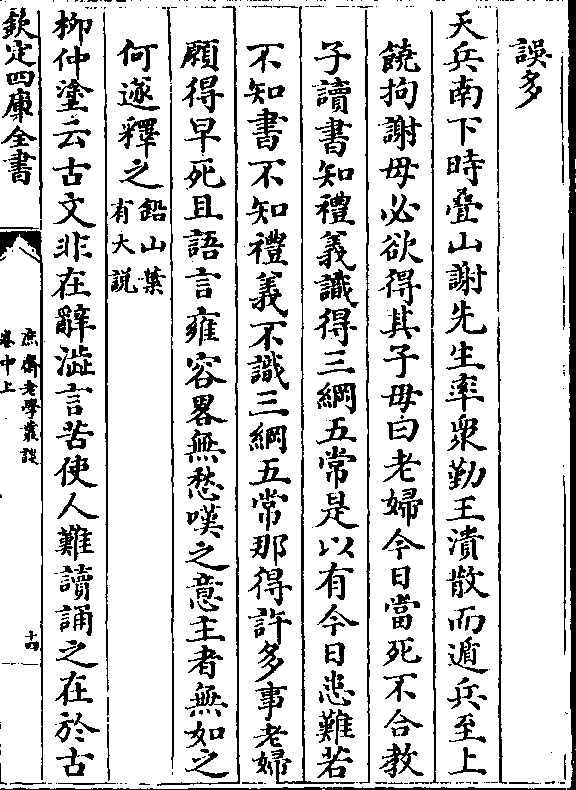 誤多
天兵南下時疊山謝先生率衆勤王潰散而遁兵至上
饒拘謝母必欲得其子母曰老婦今日當死不合教
子讀書知禮義識得三綱五常是以有今日患難若
不知書不知禮義不識三綱五常那得許多事老婦
願得早死且語言雍容畧無愁嘆之意主者無如之
何遂釋之鉛山葉
有大説
柳仲塗云古文非在辭澁言苦使人難讀誦之在於古
欽定四庫全書
庶齋老學叢談
卷中上
十四